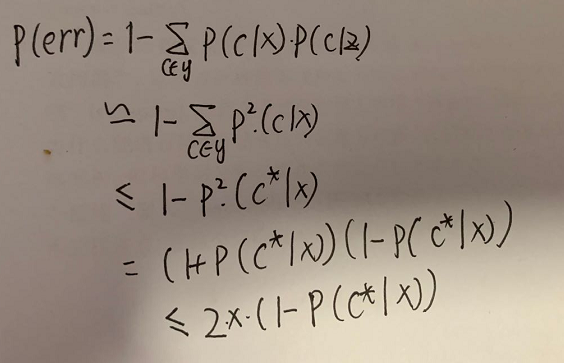 P(err) = 1 - ∑_{c∈y} P(c|x)·P(c|z)
≃ 1 - ∑_{c∈y} P²·(c|x)
≤ 1 - P²·(c*|x)
= (1+P(c*|x))(1-P(c*|x))
≤ 2·x·(1-P(c*|x))